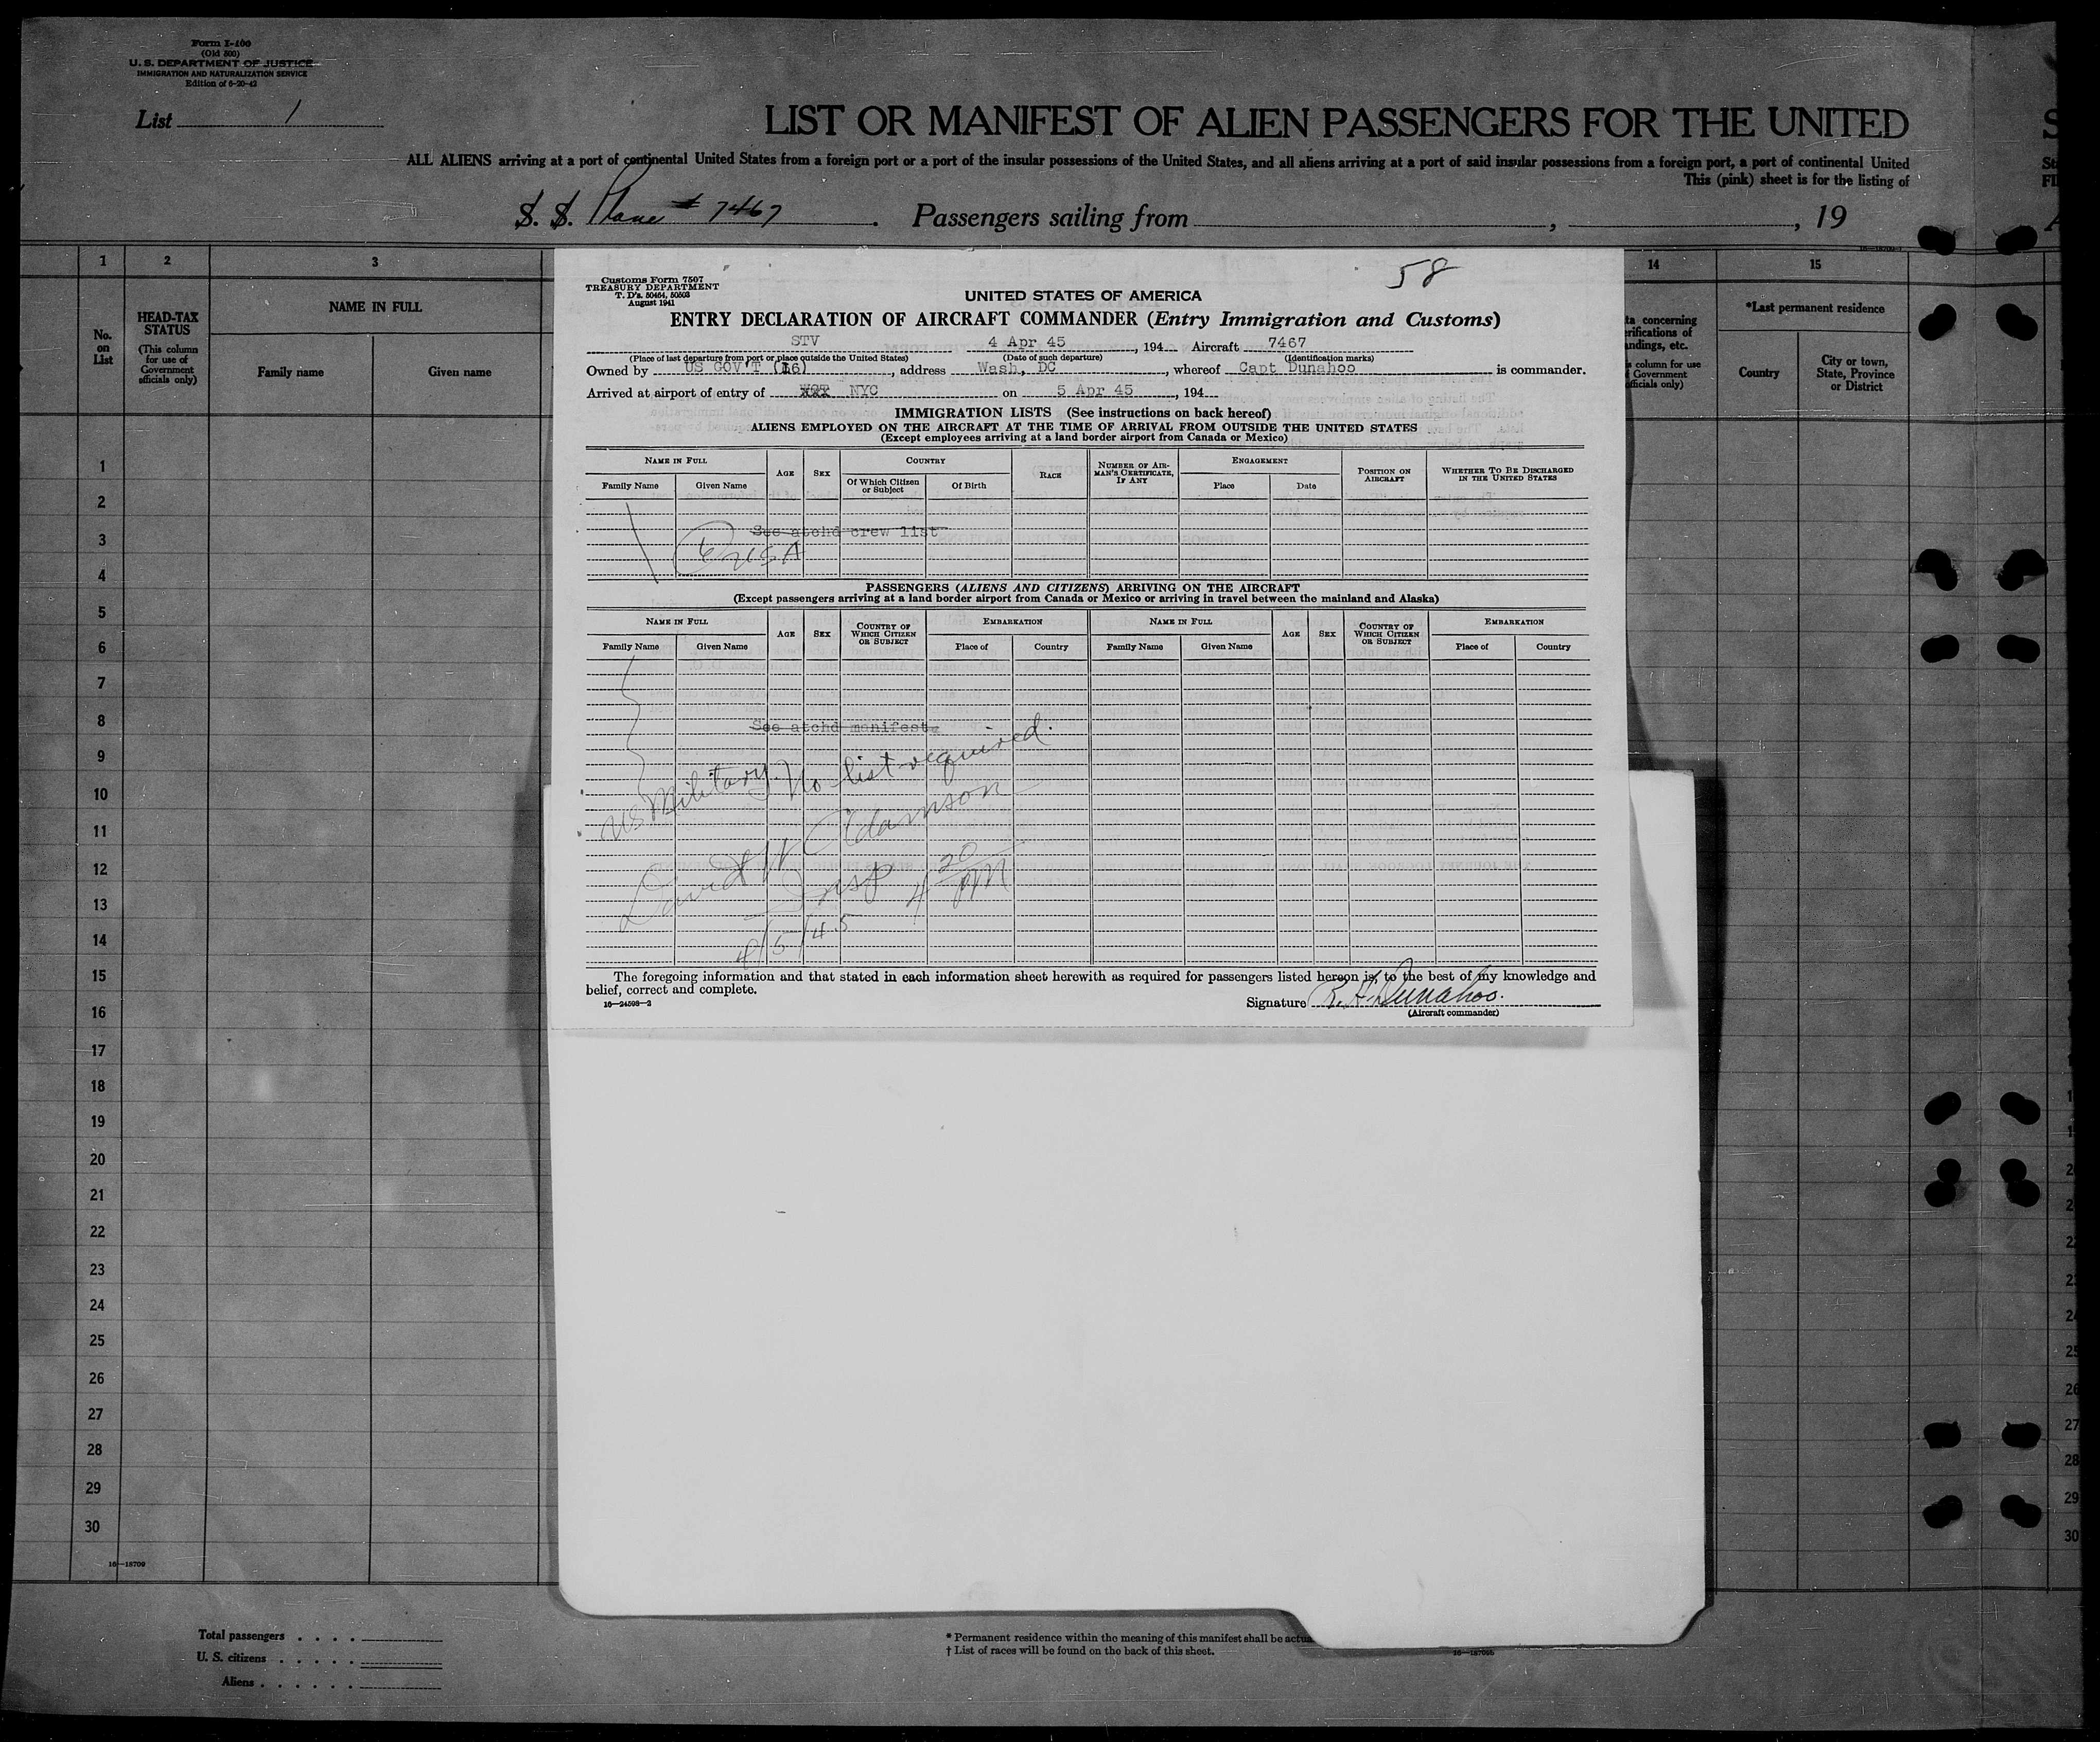 Form I-400
(Old 500)
U. S. DEPARTMENT OF JUSTICE
IMMIGRATION AND NATURALIZATION SERVICE
Edition of 6-20-42
List 1
LIST OR MANIFEST OF ALIEN PASSENGERS FOR THE UNITED
ALL ALIENS arriving at a port of continental United States from a foreign port or a port of the insular possessions of the United States, and all aliens arriving at a port of said insular possessions from a foreign port, a port of continental United
This (pink) sheet is for the listing of
S. S. Plane # 7467. Passengers sailing from , , 19
1 2 3 14 15
No. on List
HEAD-TAX STATUS
(This column for use of Government officials only)
NAME IN FULL
Family name Given name
*Last permanent residence
Country
City or town, State, Province or District
58
Customs Form 7507
TREASURY DEPARTMENT
T. D's. 50464, 50503
August 1941
UNITED STATES OF AMERICA
ENTRY DECLARATION OF AIRCRAFT COMMANDER (Entry Immigration and Customs)
STV 4 Apr 45, 194 Aircraft 7467
(Place of last departure from port or place outside the United States) (Date of such departure) (Identification marks)
Owned by US GOV'T (16), address Wash, DC, whereof Capt Dunahoo is commander.
Arrived at airport of entry of NYC on 5 Apr 45, 194
IMMIGRATION LISTS (See instructions on back hereof)
ALIENS EMPLOYED ON THE AIRCRAFT AT THE TIME OF ARRIVAL FROM OUTSIDE THE UNITED STATES
(Except employees arriving at a land border airport from Canada or Mexico)
NAME IN FULL AGE SEX COUNTRY RACE NUMBER OF AIRMAN'S CERTIFICATE, IF ANY ENGAGEMENT POSITION ON AIRCRAFT WHETHER TO BE DISCHARGED IN THE UNITED STATES
Family Name Given Name Of Which Citizen or Subject Of Birth Place Date
See atchd crew list
6 USA
PASSENGERS (ALIENS AND CITIZENS) ARRIVING ON THE AIRCRAFT
(Except passengers arriving at a land border airport from Canada or Mexico or arriving in travel between the mainland and Alaska)
NAME IN FULL AGE SEX COUNTRY OF WHICH CITIZEN OR SUBJECT EMBARKATION NAME IN FULL AGE SEX COUNTRY OF WHICH CITIZEN OR SUBJECT EMBARKATION
Family Name Given Name Place of Country Family Name Given Name Place of Country
See atchd manifest
US Military. No list required.
David H Adamson
Insp 4 20 PM
4/5/45
The foregoing information and that stated in each information sheet herewith as required for passengers listed hereon is, to the best of my knowledge and
belief, correct and complete.
16—24598-2
Signature R. H. Dunahoo.
(Aircraft commander)
1
2
3
4
5
6
7
8
9
10
11
12
13
14
15
16
17
18
19
20
21
22
23
24
25
26
27
28
29
30
16—18709
Total passengers
U. S. citizens
Aliens
* Permanent residence within the meaning of this manifest shall be
† List of races will be found on the back of this sheet.